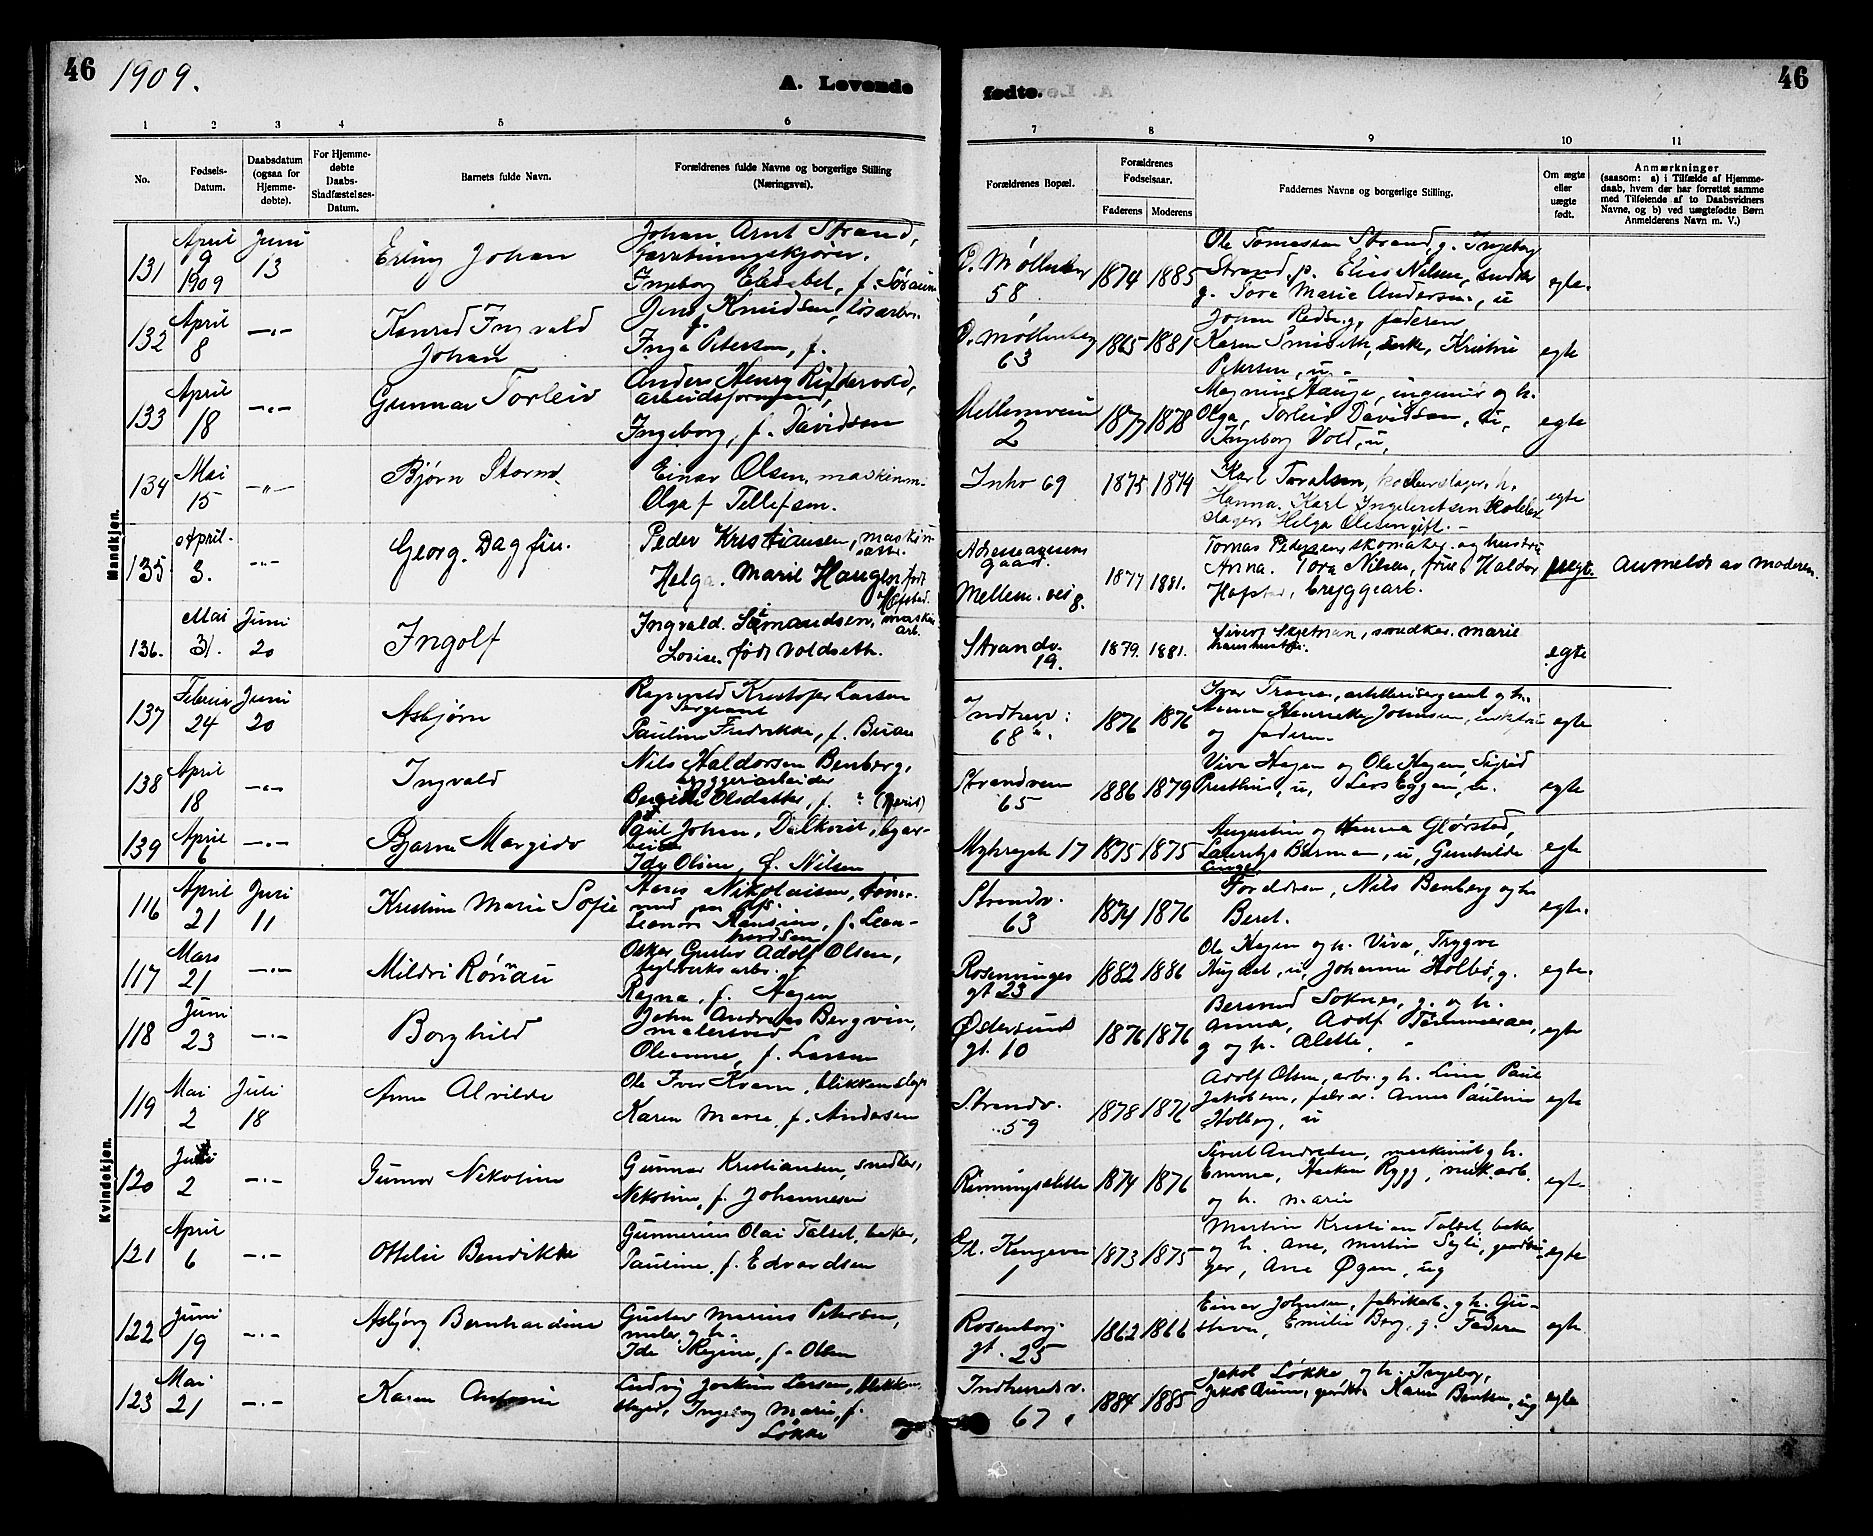 46
1909.
A. Levende
fødte.
46
1
2
3
4
5
6
7
8
9
10
11
No.
Fødsels-
Datum.
Daabsdatum
(ogsaa for
Hjemme-
døbte).
For Hjemme-
døbte
Daabs-
Stadfæstelses-
Datum.
Barnets fulde Navn.
Forældrenes fulde Navne og borgerlige Stilling
(Næringsvei).
Forældrenes Bopæl.
Forældrenes
Fødselsaar.
Faderens
Moderens
Faddernes Navne og borgerlige Stilling.
Om ægte
eller
uægte
født.
Anmærkninger
(saasom: a) i Tilfælde af Hjemme-
daab, hvem der har forrettet samme
med Tilføiende af to Daabsvidners
Navne, og b) ved uægtefødte Børn
Anmelderens Navn m. V.)
Mandkjøn.
131
April
9
1909
Juni
13
Erling Johan
Johan Arnt Strand,
forretningskjører.
Ingeborg Elisabet, f.
Ø. Møllenberg
58
1874
1885
Ole Tomassen Strand, g. Ingeborg
Strand, p. Elias Nilsen,
g. Tora Marie Andersen, u
egte.
132
April
8
—"—
Konrad Ingvald
Johan
Jens Knudsen, løsarb.
Inga Petersen, f.
Ø. Møllenberg
63
1865
1881
Johan faderen
Karen Smiseth, enke, Kristine
Petersen, u.
egte
133
April
18
—"—
Gunnar Torleiv
Anders Henry Riddervold,
arbeidsformand,
Ingeborg, f. Davidsen
Mellemveien
2
1877
1878
Magnus Hauge, ingeniør og h.
Olga, Torleiv Davidsen, u,
Ingeborg Vold, u,
egte
134
Mai
15
—"—
Bjørn Storm
Einar Olsen, maskinm.
Olga f Tellefsen.
Inhv 69
1875
1874
Karl Toralsen, h.
Hanna. Karl
Helga Olesen gift. -
egte
135
April.
3.
—"—
Georg. Dagfin.
Peder Kristiansen, maskin
Helga. Marie Haugen født
Hofstad.
gaard.
Mellem. vei 8.
1877
1881.
Tomas Pedersen, skomaker. og hustru
Anna. Tora Nilsen, frue. Haldor
Hofstad, bryggearb.
uegte.
Anmeldt av moderen.
136.
Mai
31.
Juni
20
Ingolf
Ingvald. Simandsen, maskin
arb.
Lovise. født Voldseth.
Strandv.
19.
1879.
1881.
Sivert Skjetman, smed. Marie
hans hustru.
egte
137
Februar
24
Juni
20
Asbjørn
Ragnvald Kristofer Larsen
Sergeant
Pauline Fredrikke, f. Buaas
Indherv:
68
1876
1876
Ivar Trana, artillerisergeant og h.
Anna Henrikke Johnsen,
og faderen
egte
138
April
18
—"—
Ingvald
Nils Haldorsen Benberg,
bryggeriarbeider
Beritte Olsdatter, f. : (Berit)
Strandveien
65
1886
1879
Viva Hagen og Ole Hagen, Sigrid
Presthus, u, Lars Eggen, u.
egte
139
April
6
—"—
Bjarne Margido
Paul Johan, Dalkvist, byar-
beider
Ida Olsen, f. Nilsen
17
1875
1875
Augustin og Hanna Glørstad,
Lauritz Berman, u, Gunhilde
egte
Kvindekjøn.
116
April
21
Juni
11
Kristine Marie Sofie
Hans Nikolaisen, tøm-
Leonora Hansine, f. Leon-
hardsen
Strandv.
63
1874
1876
Foreldrene, Nils Benberg og h.
Beret.
egte.
117
Mars
21
—"—
Mildri Rønnau
Oskar Gustav Adolf Olsen,
teglverksarb.
Ragna, f. Hagen
Rosenborgs
gt 23
1882
1886
Ole Hagen og h. Viva, Trygve
u, Johanna Holbø, g.
egte.
118
Juni
23
—"—
Borghild
John Andreas Bergvin,
malersvend
Oleanne, f. Larsen
Østersunds
gt. 10
1876
1876
Bernard Soknes, g. og h.
Anna, Adolf
g og h. Alette,
egte
119
Mai
2
Juli
18
Anna Alvilde
Ole Iver Kvam, blikkenslager
Karen Marie, f. Andersen
Strandv.
59
1878
1876
Adolf Olsen, arb. g h. Lina, Paul
Jakobsen, Anna Pauline
Holberg, u
egte
120
2
—"—
Gunvor Nikoline
Gunnar Kristiansen, snedker,
Nikoline, f. Johannesen
1874
1876
Sivert Andresen, maskinist g h.
Emma, Haakon Rygg, mek. arb.
og h. Marie
egte
121
April
6
—"—
Ottelie Bendikke
Gunnerius Olai Talset, baker,
Pauline, f. Edvardsen
Gl. Kongevei
1
1873
1875
Martin Kristian Talset, baker
og h. Ane, Martin gaardbru-
ger, Ane Øgen, ug
egte
122
Juni
19
—"—
Asbjørg Bernhardine
Gustav Marius Petersen,
maler, g h.
Ida Regine, f. Olsen
Rosenborg-
gt. 25
1862
1866
Einar Johnsen, fabrikarb. g h. Gu-
stava, Emilie Berg, g. Faderen
egte
123
Mai
21
—"—
Karen Antonie
Ludvig Joakim Larsen, blikken-
slager, Ingeborg Marie, f.
Løkke
Indherredsv.
67
1884
1885
Jakob Løkke og h. Ingeborg,
Karen Bentsen, ug
egte